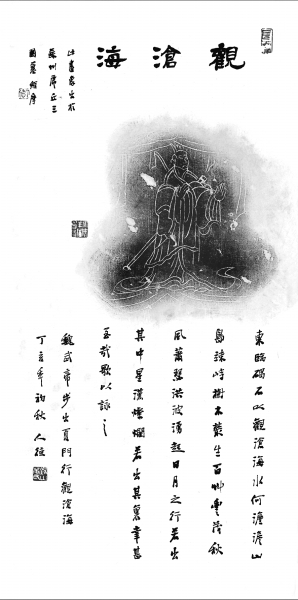 觀滄海
東臨碣石以觀滄海水何澹澹山
島竦峙樹木叢生百艸豐茂秋
風蕭瑟洪波湧起日月之行若出
其中星漢燦爛若出其裏幸甚
至哉歌以詠之
魏武帝步出夏門行觀滄海
丁亥年初秋
蘇州虎丘三
國墓